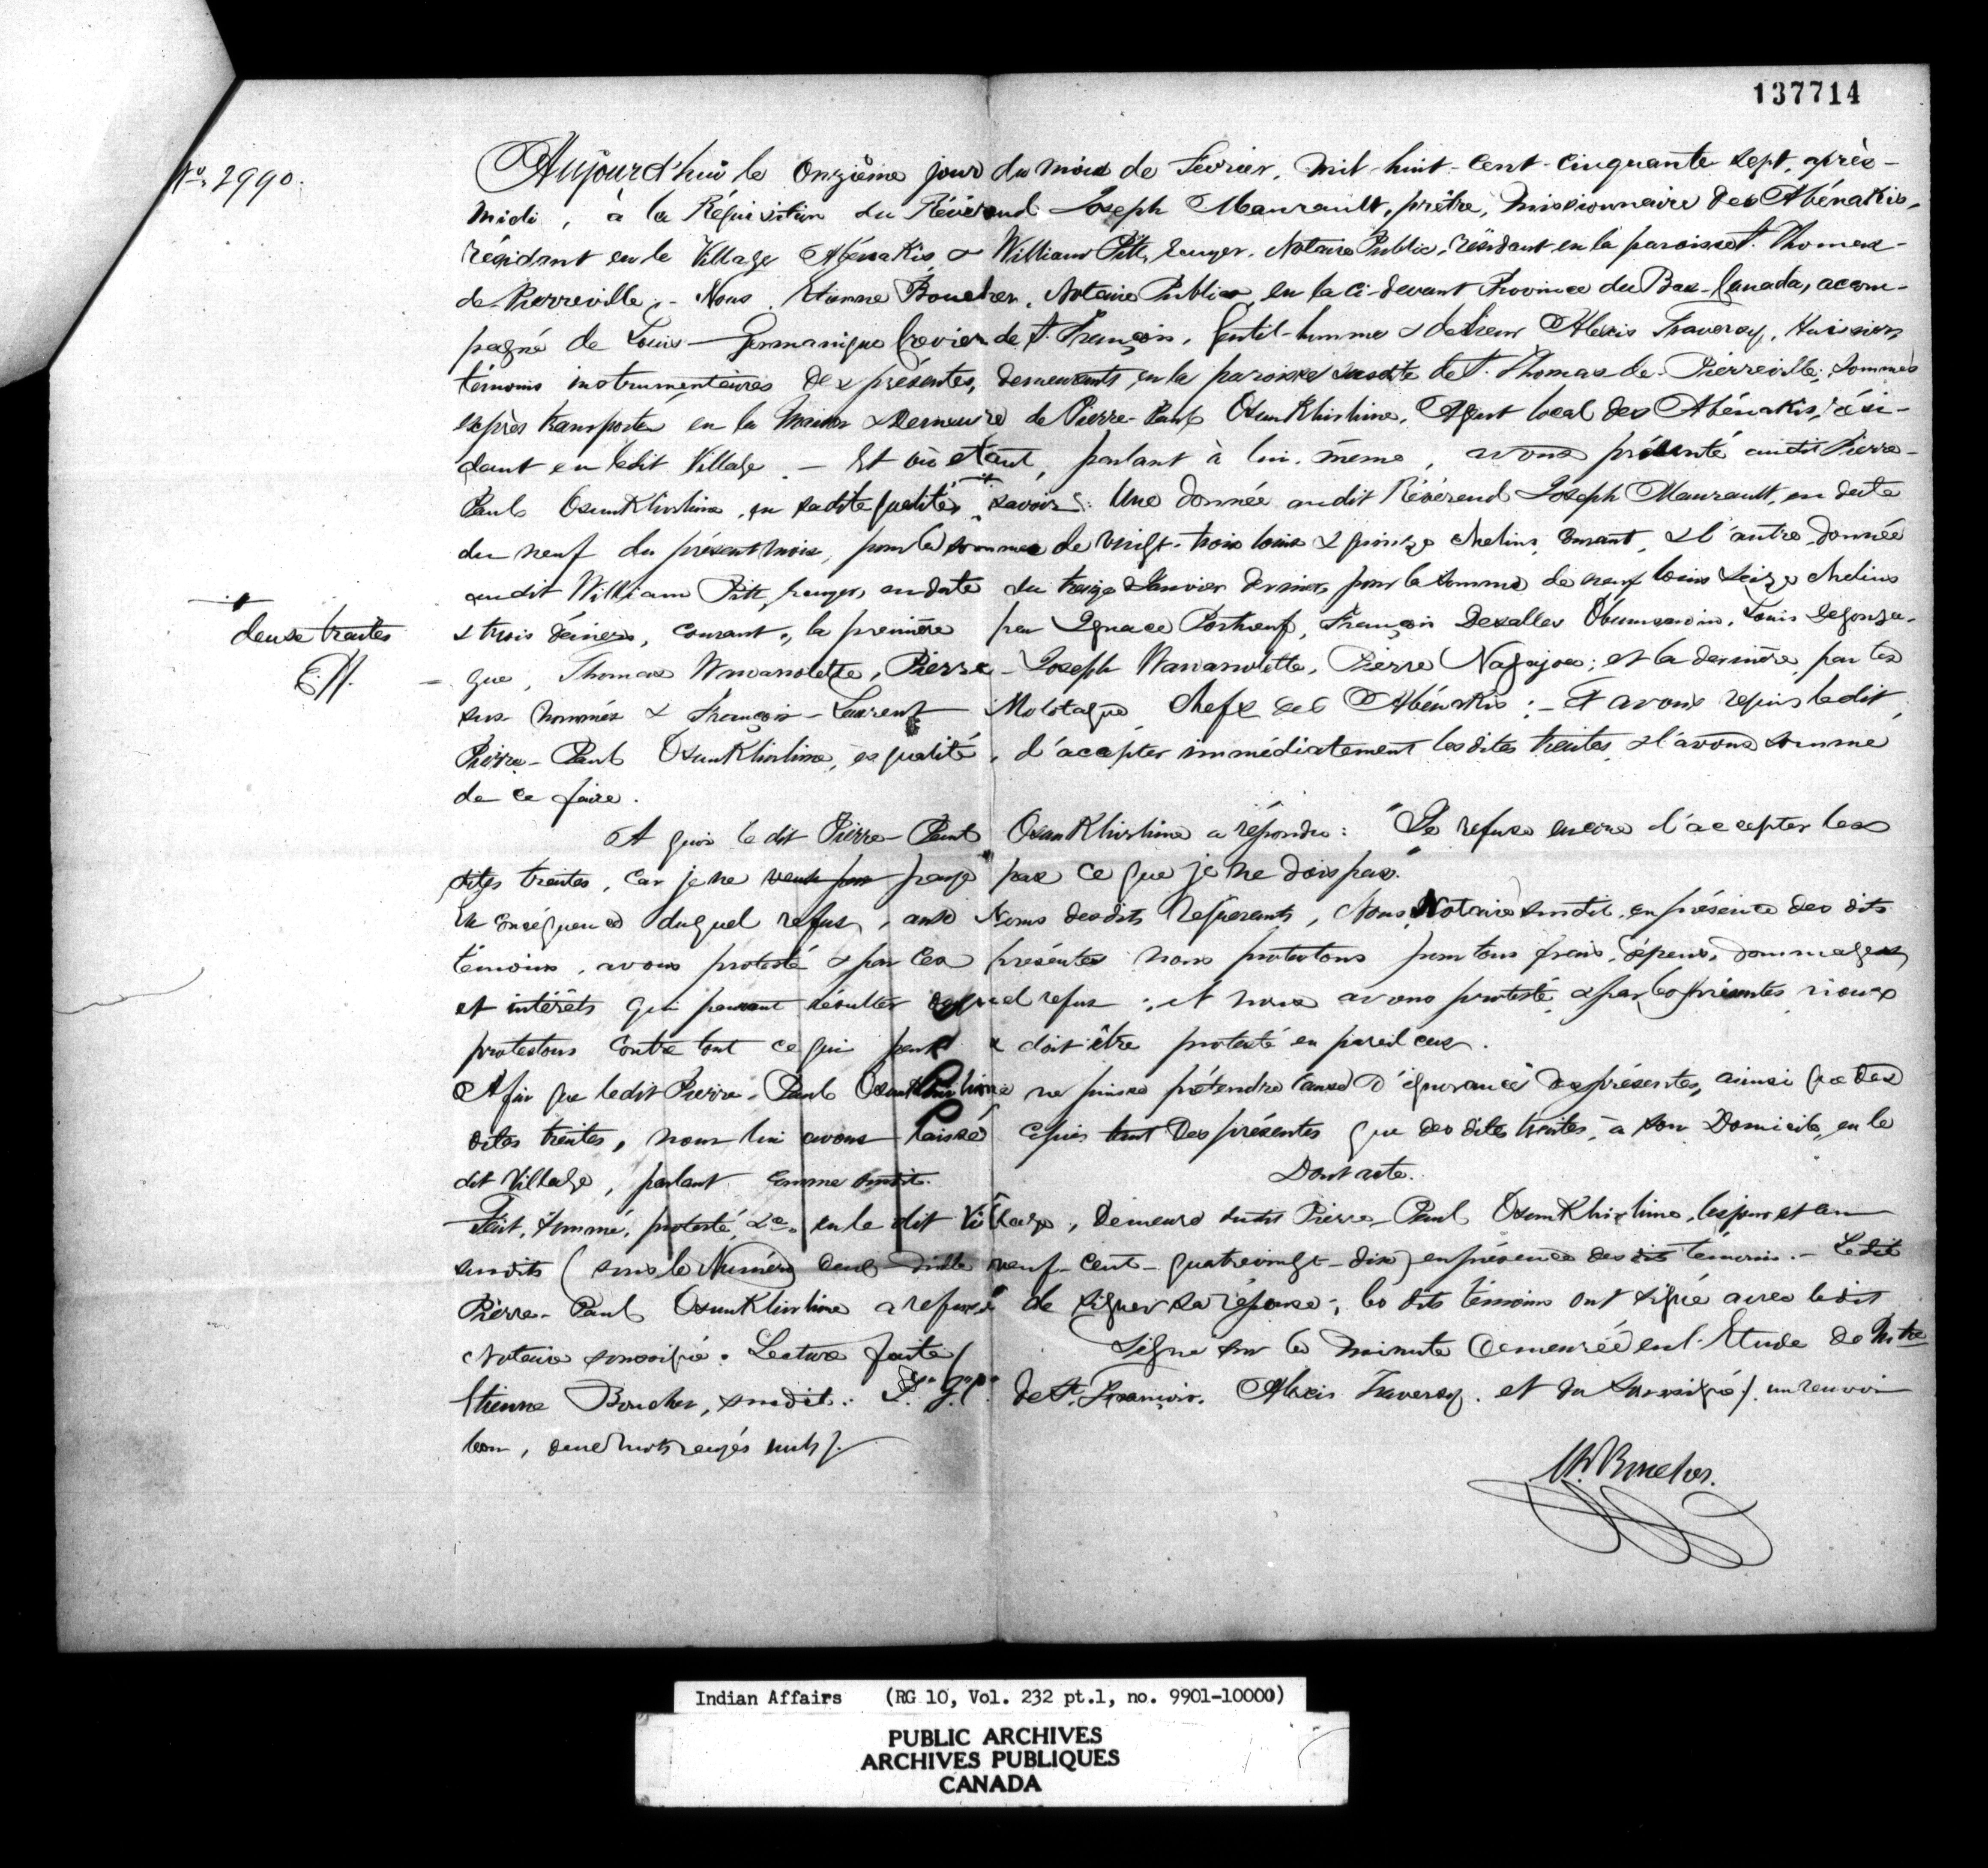 137714
No. 2990.
Aujourd'hui le onzième jour du mois de Février, mil huit-cent-cinquante sept, après-
midi, à la Réquisition du Révérend Joseph Maurault, prêtre, missionnaire des Abénakis,
résidant en le Village Abénakis & William Pitt, Notaire Public, résidant en la paroisse St. Thomas-
de-Pierreville; - Nous, Etienne Boucher, Notaire Public, en la ci-devant Province du Bas-Canada, accom-
pagné de Louis-Germanique Crevier de St. François, Gentil-homme & de Sieur Alexis Traversy, Huissier,
témoins instrumentaires des présentes, demeurants en la paroisse susdite de St. Thomas-de-Pierreville; sommes
exprès transporté en la Maison & Demeure de Pierre-Paul OsunKhirhine, Agent local des Abénakis, rési-
dant en ledit Village - Et où étant, parlant à lui-même, avons présenté audit Pierre-
Paul OsunKhirhine, en sadite qualité, savoir: Une donnée audit Révérend Joseph Maurault, en date
du neuf du présent mois, pour la somme de vingt-trois louis & quinze chelins, courant, & l'autre donnée
audit William Pitt, en date du treize Janvier dernier, pour la somme de neuf louis seize chelins
deux traites
& trois deniers, courant, la première par Ignace Portneuf, François Desalles Obumsawin, Louis Degonza-
E.B.
gue, Thomas Wawanolette, Pierre-Joseph Wawanolette, Pierre Nagajoa; et la dernière, par les
sus-nommés & François-Laurent Molotague Chefs des Abénakis; - Et avons requis ledit
Pierre-Paul OsunKhirhine, ès qualité, d'accepter immédiatement lesdites traites & l'avons sommé
de ce faire.
A quoi le dit Pierre-Paul OsunKhirhine a répondu: "Je refuse encore d'accepter les
dites traites, car je ne veux pas paye pas ce que je ne dois pas."
En conséquence duquel refus, aux Noms desdits Requérants, Nous Notaire susdit, en présence des dits
témoins, avons protesté & par ces présentes nous protestons pour tous frais, dépens, dommages
et intérêts qui peuvent résulter duquel refus; et nous avons protesté & par les présentes nous
protestons contre tout ce qui peut & doit être protesté en pareil cas.
Afin que ledit Pierre-Paul OsunKhirhine ne puisse prétendre cause d'ignorance des présentes, ainsi que des
dites traites, nous lui avons laissé copies tant des présentes que des dites traites, à son Domicile, en le
dit Village, parlant comme susdit. Dont acte.
Fait, sommé, protesté, &a. en le dit Village, Demeure dudit Pierre-Paul OsunKhirhine, les jour et an
susdits (sous le Numéro deux mille neuf-cent-quatrevingt-dix) en présence des dits témoins. - Ledit
Pierre-Paul OsunKhirhine a refusé de signer sa réponse; les dits témoins ont signé avec ledit
Notaire soussigné. Lecture faite. Signé sur la minute demeurée en l'Etude de Mtre
Etienne Boucher, susdit: L. G. C. de St. François. Alexis Traversy. et du Soussigné / un renvoi
bon, deux mots rayés nuls /.
Boucher.
Indian Affairs (RG 10, Vol. 232 pt.1, no. 9901-10000)
PUBLIC ARCHIVES
ARCHIVES PUBLIQUES
CANADA